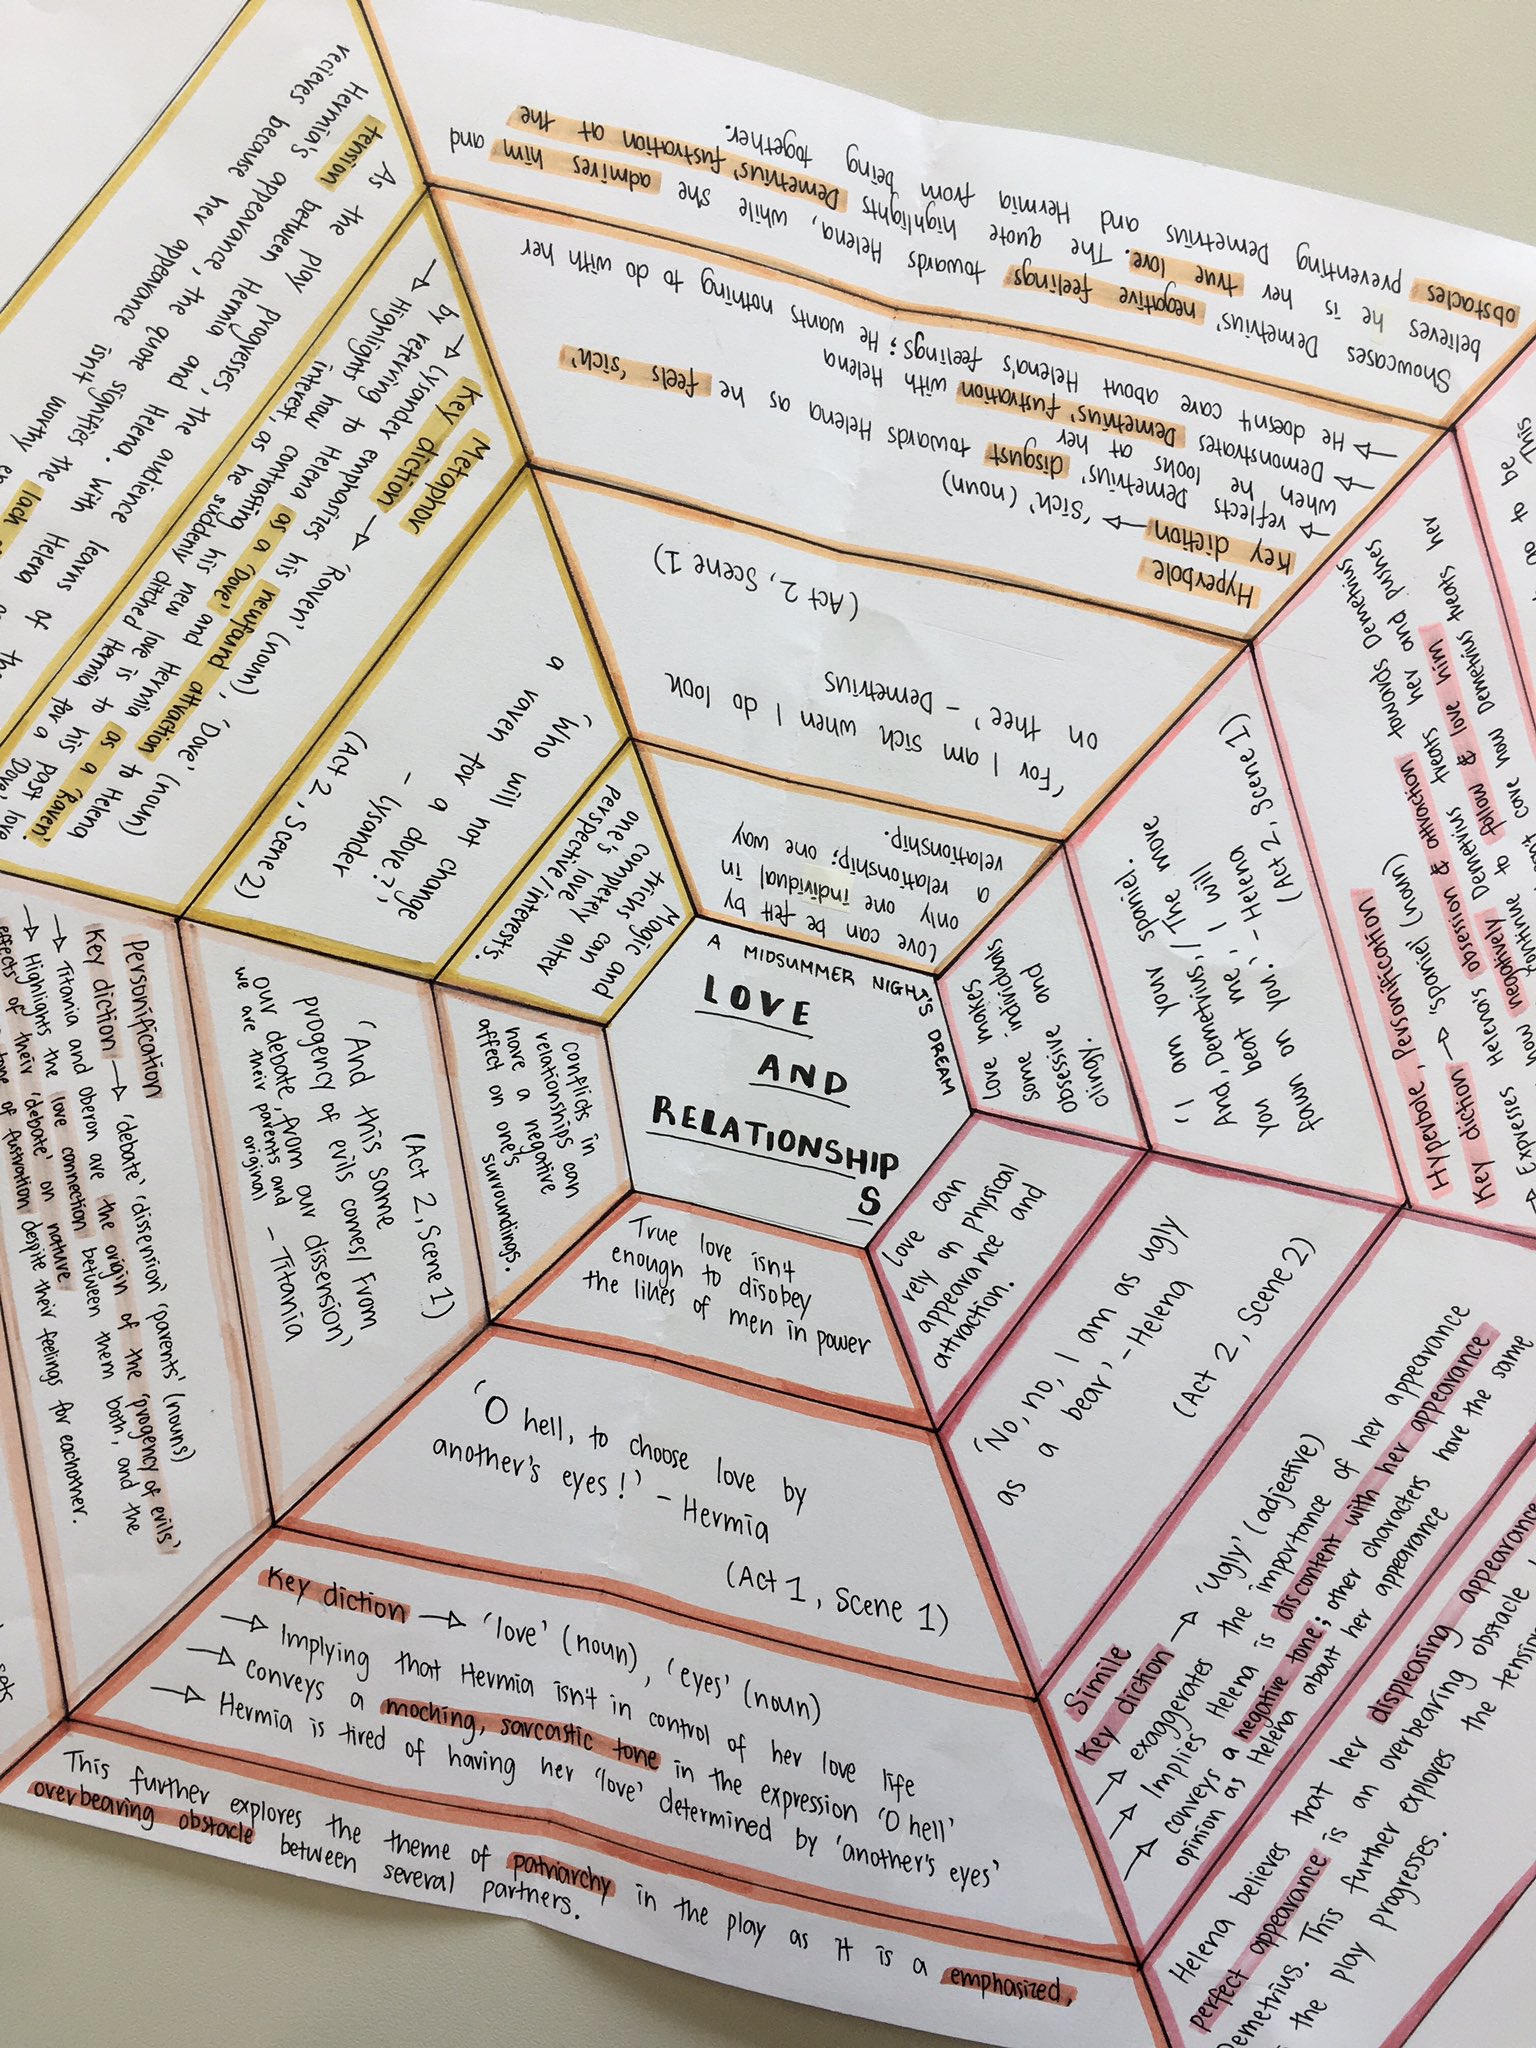 A MIDSUMMER NIGHT'S DREAM
LOVE
AND
RELATIONSHIP
S
True love isn't
enough to disobey
the likes of men in power
'O hell, to choose love by
another's eyes!' - Hermia
(Act 1, Scene 1)
Key diction → 'love' (noun), 'eyes' (noun)
→ Implying that Hermia isn't in control of her love life
→ conveys a mocking, sarcastic tone in the expression 'O hell'
→ Hermia is tired of having her 'love' determined by 'another's eyes'
This further explores the theme of patriarchy in the play as it is a emphasized,
overbearing obstacle between several partners.
conflicts in
relationships can
have a negative
affect on one's
surroundings.
(Act 2, Scene 1)
'And this same
progency of evils comes/From
our debate, from our dissension/
we are their parents and
original - Titania
Personification
Key diction → 'debate' 'dissension' 'parents' (nouns)
→ Titania and Oberon are the origin of the 'progency of evils'
→ Highlights the love connection between them both, and the
effects of their 'debate' on nature
tone of fustration despite their feelings for eachother.
Magic and
tricks can
completely alter
one's love
perspective/interests.
'Who will not change
a raven for a dove?'
- Lysander
(Act 2, Scene 2)
Metaphor
Key diction → 'Raven' (noun), 'Dove' (noun)
→ Lysander emphasizes his newfound attraction to Helena
by referring to Helena as a 'Dove' and Hermia as a 'Raven'.
→ Highlights how contrasting his new love is to his past love
interest, as he suddenly ditched Hermia for a 'Dove'
As the play progresses, the audience learns of the
tension between Hermia and Helena. With Helena
Hermia's appearance, the quote signifies the lack
recieves because her appearance isn't worthy
Love can be felt by
only one individual in
a relationship; one way
relationship.
'For I am sick when I do look
on thee' - Demetrius
(Act 2, Scene 1)
Hyperbole
Key diction → 'Sick' (noun)
→ reflects Demetrius' disgust towards Helena as he feels 'sick'
when he looks at her
→ Demonstrates Demetrius' fustration with Helena
→ He doesn't care about Helena's feelings; He wants nothing to do with her
Showcases Demetrius' negative feelings towards Helena, while she admires him and
believes he is her true love. The quote highlights Demetrius' fustration at the
obstacles preventing Demetrius and Hermia from being together.
Love makes
some individuals
obsessive and
clingy.
'I am your spaniel.
And, Demetrius,/The more
you beat me, I will
fawn on you.' - Helena
(Act 2, Scene 1)
Hyperbole, Personification
Key diction → 'spaniel' (noun)
→ Expresses Helena's obsession & attraction towards Demetrius
how negatively Demetrius treats her and pushes
continue to follow & love him
care how Demetrius treats her
This
go to be
Love can
rely on physical
appearance and
attraction.
'No, no, I am as ugly
as a bear,' - Helena
(Act 2, Scene 2)
Simile
Key diction → 'ugly' (adjective)
→ exaggerates the importance of her appearance
→ Implies Helena is discontent with her appearance
→ conveys a negative tone; other characters have the same
opinion as Helena about her appearance
Helena believes that her displeasing appearance
perfect appearance is an overbearing obstacle
Demetrius. This further explores the tension
the play progresses.